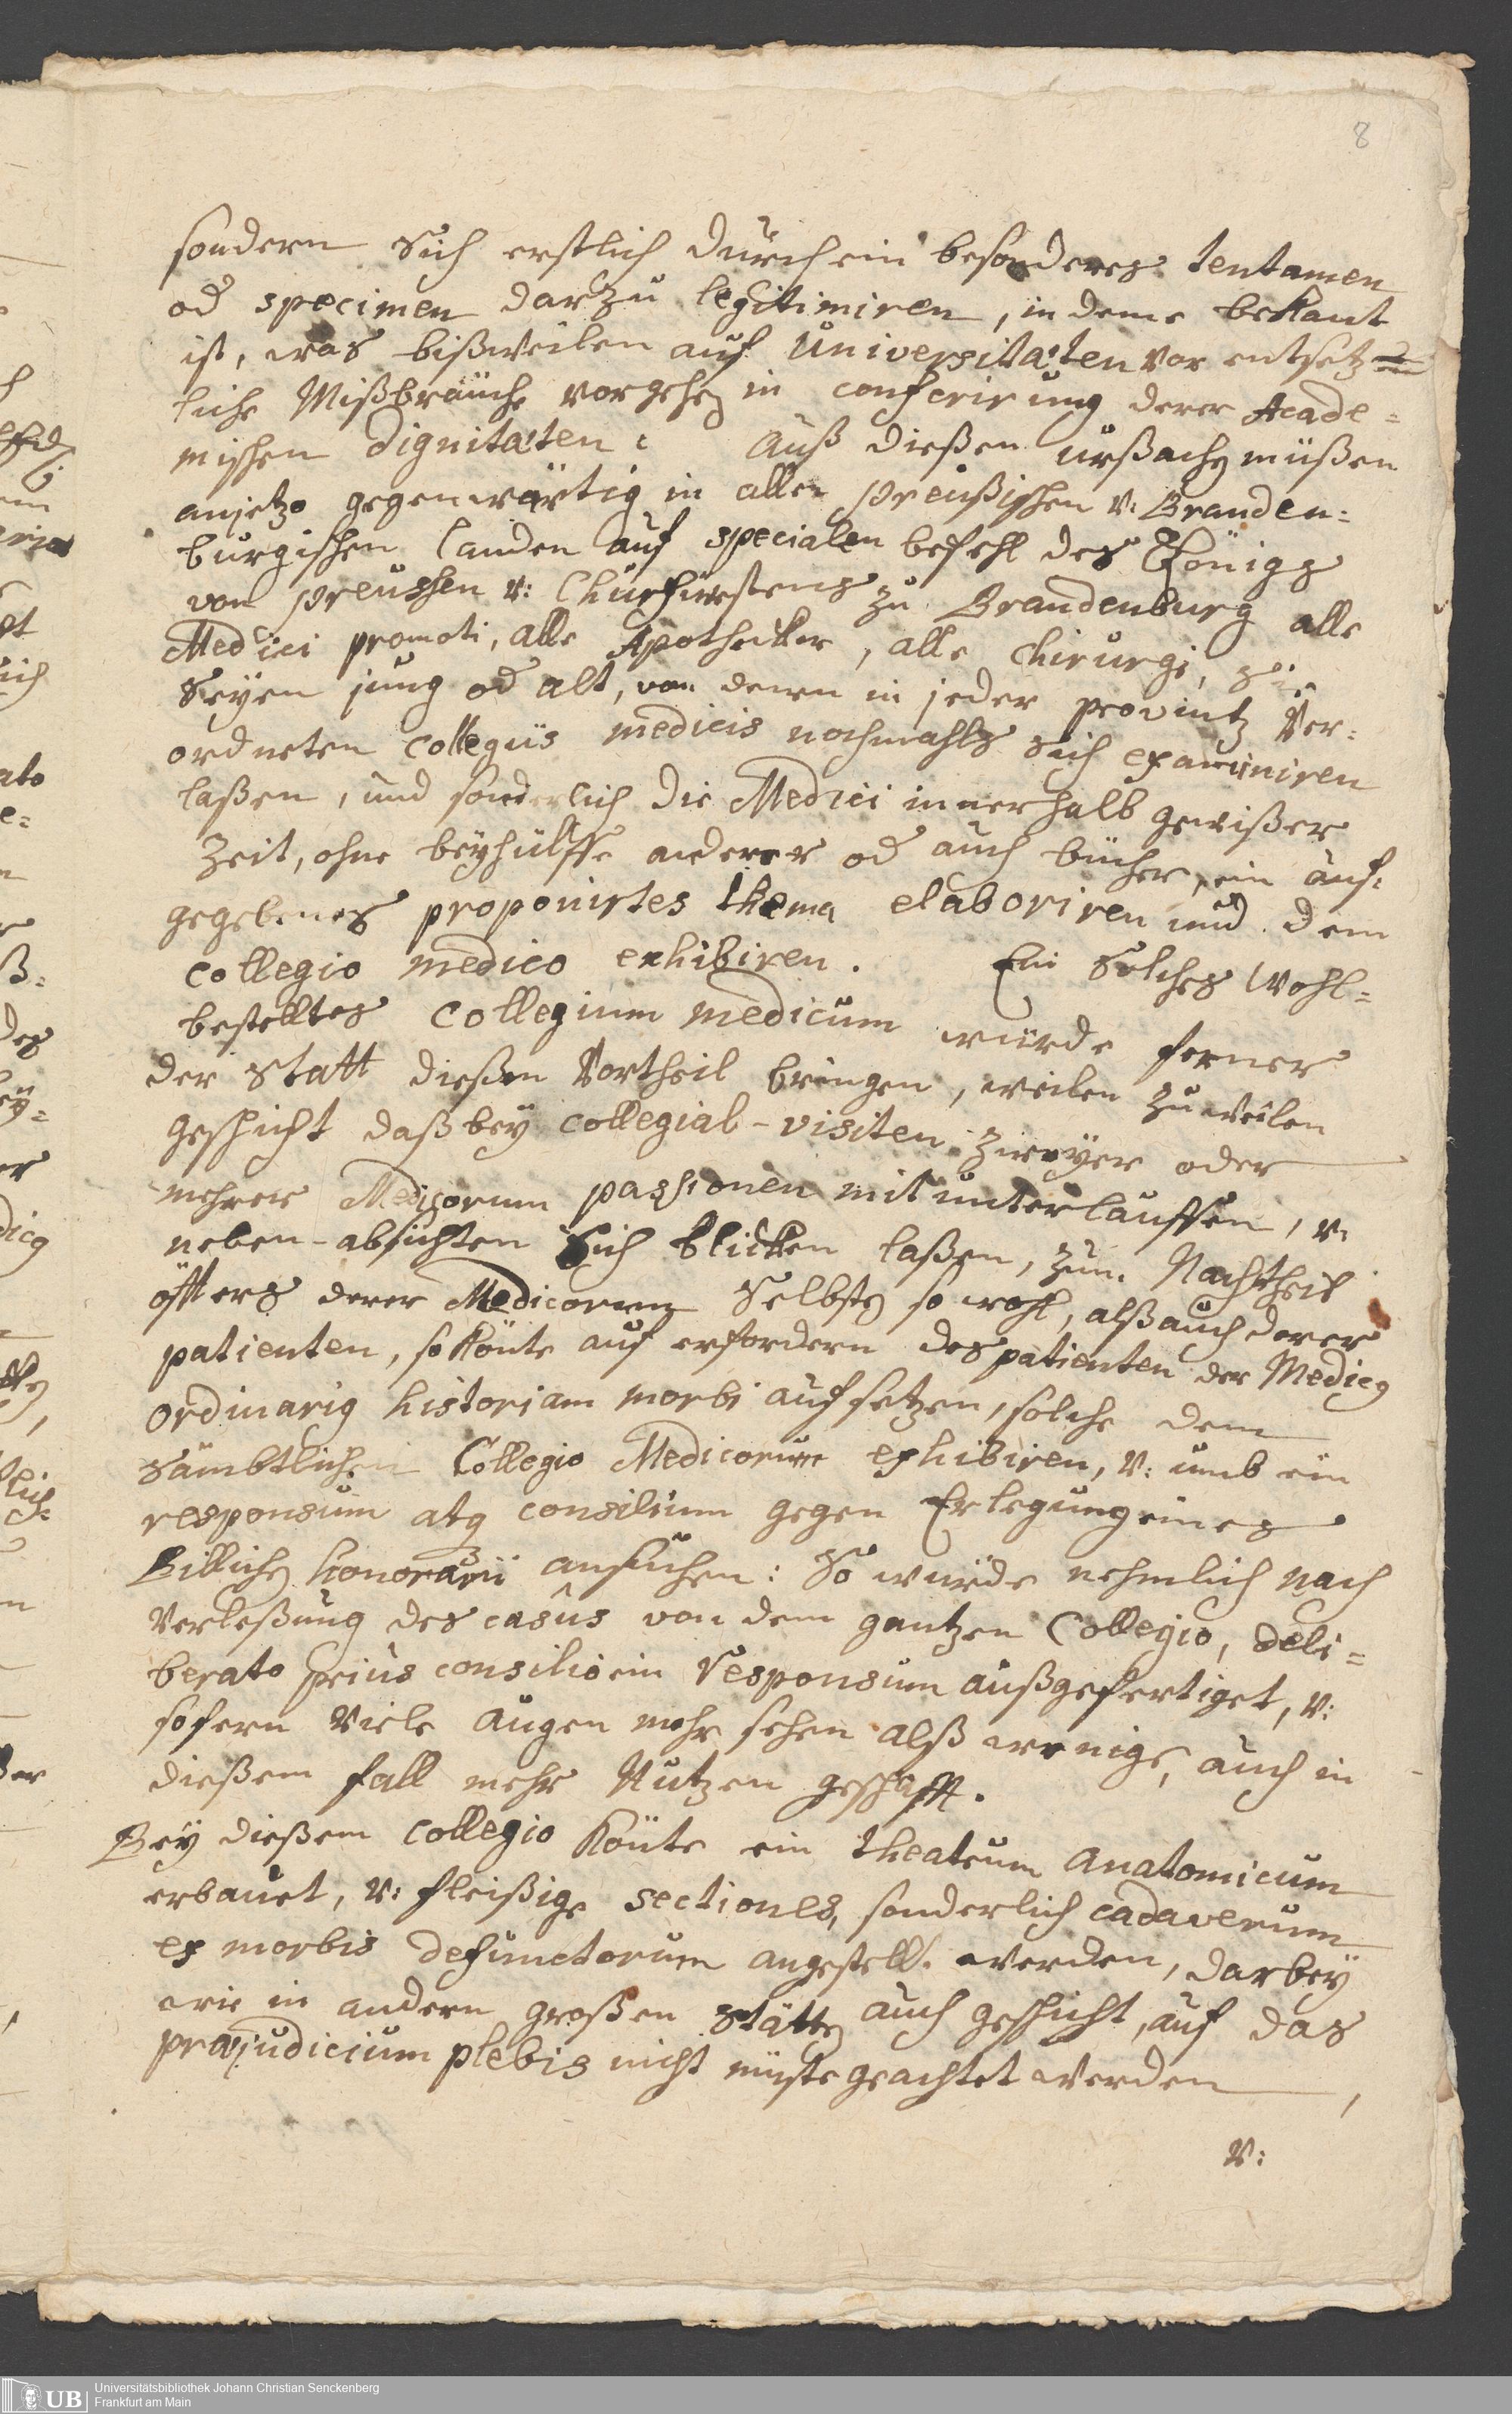 8
sondern sich erstlich durch ein besonderes tentamen
od specimen darzu legitimiren, in deme bekant
ist, was bißweilen auf Universitæten vor entsetz=
liche Mißbräuche vorgehen in conferirung derer Acade=
mischen dignitæten: Auß dießen urßachen müßen
anjetzo gegenwärtig in allen Preußischen v: Branden=
burgischen Landen auf specialen befehl des Königs
von Preussen v: Churfürstens zu Brandenburg alle
Medici promoti, alle Apothecker, alle Chirurgi, sie
seyen jung od alt, von denen in jeder provintz Ver=
ordneten collegiis medicis nochmahls sich examiniren
laßen, und sonderlich die Medici innerhalb gewißer
Zeit, ohne beyhülffe anderer od auch bücher, ein auf=
gegebenes proponirtes thema elaboriren und dem
collegio medico exhibiren. Ein solches Wohl=
bestelltes Collegium medicum würde ferner
der Statt dießen Vortheil bringen, weilen zuweilen
geschicht daß bey collegial-visiten zweyer oder
mehrer Medicorum passionen mit unterlauffen, v:
neben-absichten sich blicken laßen, zum Nachtheil
öffters derer Medicorum Selbsten so wohl, alß auch derer
patienten, so könte auf erfordern des patienten der Medicus
Ordinarius historiam morbi aufsetzen, solche dem
sämbtlichen Collegio Medicorum exhibiren, v: umb ein
responsum atq consilium gegen Erlegung eines
Billichen honorarii ansuchen: So würde nehmlich nach
Verleßung des casûs von dem gantzen Collegio, deli=
berato prius consilio ein Responsum außgefertiget, v:
sofern viele augen mehr sehen alß wenige, auch in
dießem fall mehr Nutzen geschafft.
Bey dießem Collegio könte ein theatrum Anatomicum
erbauet, v: fleißige sectiones, sonderlich cadaverum
ex morbis defunctorum angestellt werden, darbey
wie in andern großen Stätten auch geschicht, auf das
præjudicium plebis nicht müste geachtet werden,
v:
UB Universitätsbibliothek Johann Christian Senckenberg
Frankfurt am Main